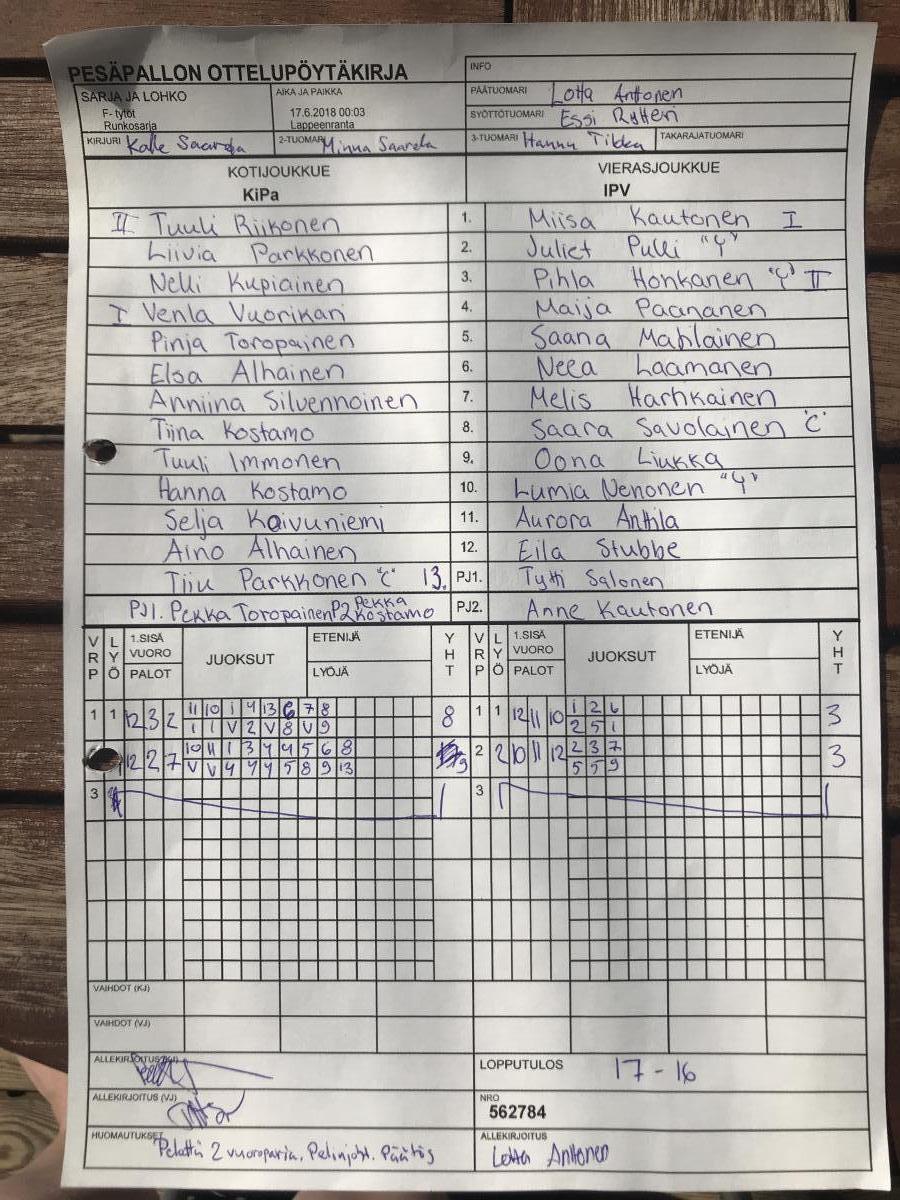 PESÄPALLON OTTELUPÖYTÄKIRJA
INFO
SARJA JA LOHKO
F- tytöt
Runkosarja
AIKA JA PAIKKA
17.6.2018 00:03
Lappeenranta
PÄÄTUOMARI Lotta Anttonen
SYÖTTÖTUOMARI Essi
KIRJURI Kalle Saarela 2-TUOMARI Minna Saarela 3-TUOMARI Hannu Tikka TAKARAJATUOMARI
KOTIJOUKKUE
KiPa
VIERASJOUKKUE
IPV
II Tuuli Riikonen 1. Miisa Kautonen I
Liivia Parkkonen 2. Juliet Pulli "Y"
Nelli Kupiainen 3. Pihla Honkanen "Y" II
I Venla Vuorikari 4. Maija Paananen
Pinja Toropainen 5. Saana Matilainen
Elsa Alhainen 6. Neea Laamanen
Anniina Silvennoinen 7. Melis Hartikainen
Tiina Kostamo 8. Saara Savolainen "C"
Tuuli Immonen 9. Oona Liukka
Hanna Kostamo 10. Lumia Nenonen "Y"
Selja Kaivuniemi 11. Aurora Anttila
Aino Alhainen 12. Eila Stubbe
Tiiu Parkkonen "C" 13. PJ1. Tytti Salonen
PJ1. Pekka Toropainen P2 Pekka Kostamo PJ2. Anne Kautonen
VRP LYÖ 1.SISÄ VUORO PALOT JUOKSUT ETENIJÄ LYÖJÄ YHT VRP LYÖ 1.SISÄ VUORO PALOT JUOKSUT ETENIJÄ LYÖJÄ YHT
1 1 12 3 2 11 10 1 4 13 6 7 8 8 1 1 12 11 10 1 2 6 3
1 1 V 2 V 8 V 9 2 5 1
12 2 7 10 11 1 3 4 4 5 6 8 9 2 2 10 11 12 2 3 7 3
V V 4 4 4 5 8 9 13 5 5 9
3 3
VAIHDOT (KJ)
VAIHDOT (VJ)
ALLEKIRJOITUS (KJ)
LOPPUTULOS 17 - 16
ALLEKIRJOITUS (VJ)
NRO
562784
HUOMAUTUKSET Pelattu 2 vuoroparia. Pelinjoht. Päätös
ALLEKIRJOITUS
Lotta Anttonen